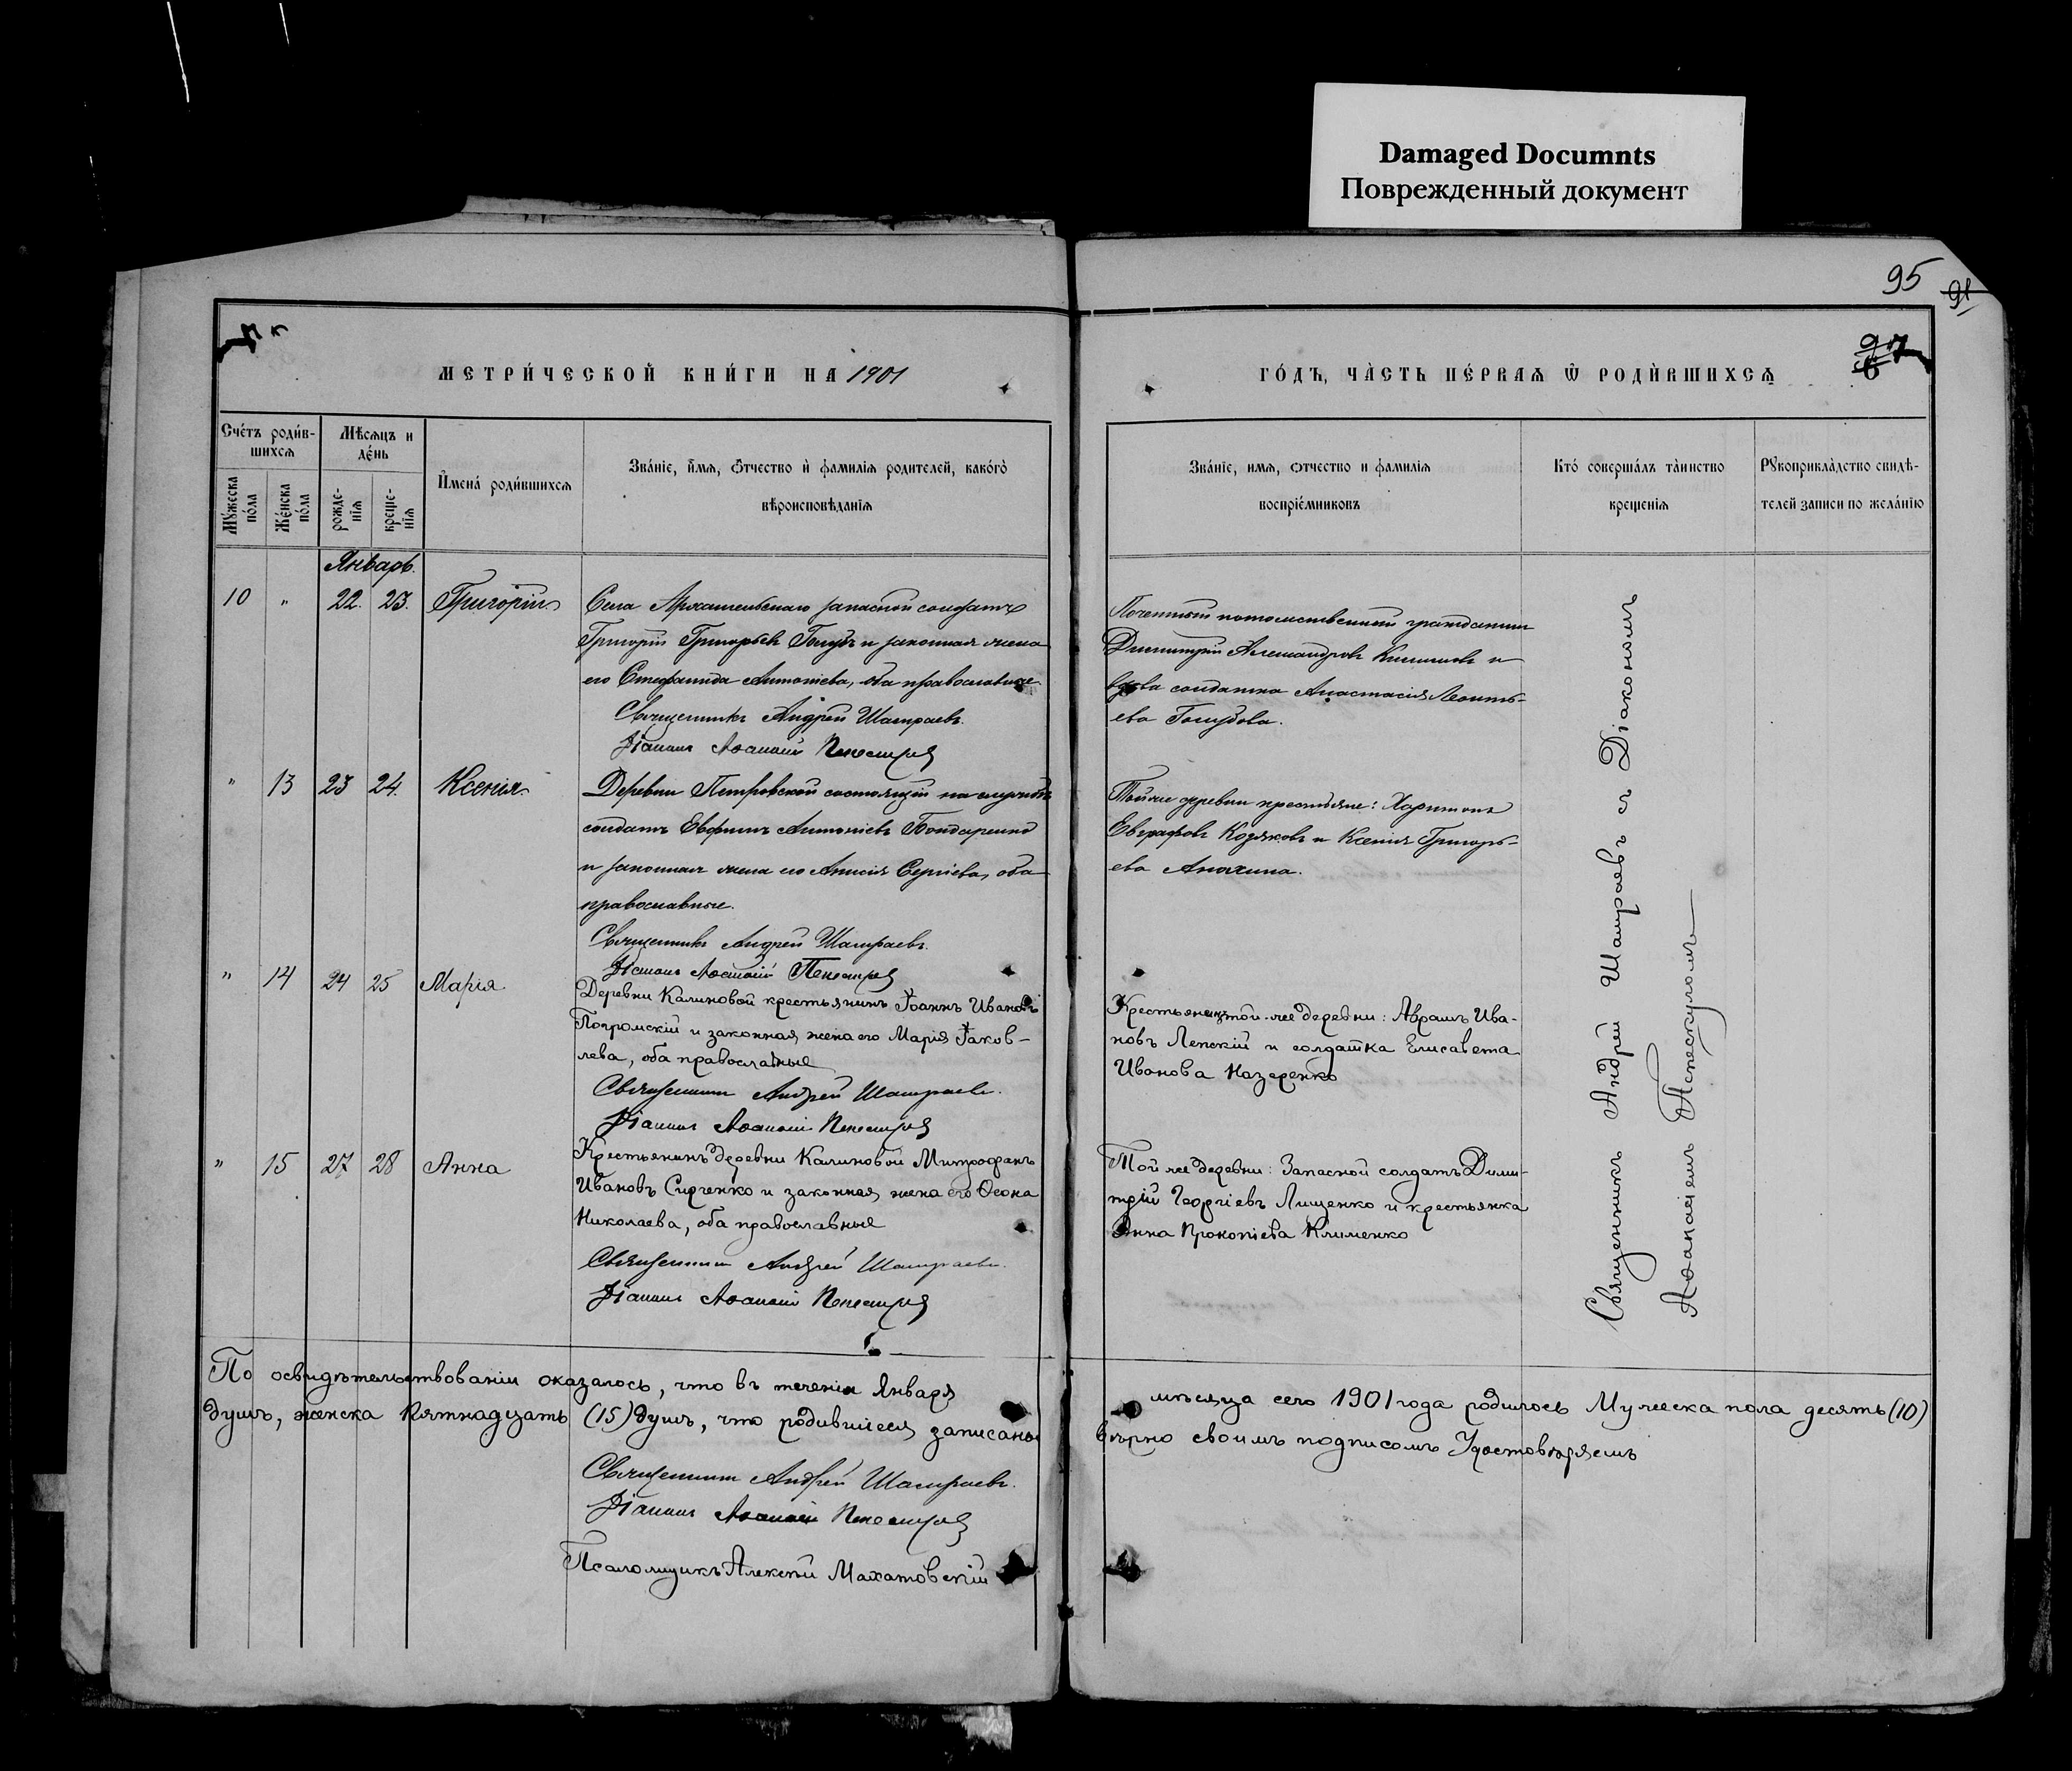 Damaged Documnts
Поврежденный документ
95
91
97
МЕТРИ́ЧЕСКОЙ КНИ́ГИ НА 1901
ГО́ДЪ, ЧА̀СТЬ ПЕ́РВАѦ Ѿ РОДЍВШИХСѦ
Сче́тъ роди́в-
шихсѧ
Мѣ́сѧцъ и
де́нь
Мꙋ́жеска
по́ла
Же́нска
по́ла
рожде-
нїѧ
креще-
нїѧ
И҆мена̀ роди́вшихсѧ
Зва́нїе, и҆́мѧ, ѻ҆́тчество и҆ фамилїѧ родителей, како́гѡ
вѣроисповѣ́данїѧ
Зва́нїе, имѧ, ѻтчество и фамилїѧ
воспрїе́мниковъ
Кто́ соверша́лъ та̀инство
крещенїѧ
Рꙋкоприкла̀дство свидѣ-
телей записи по жела́нїю
Январь.
10 " 22. 23. Григорій
Села Архангельскаго запасной солдатъ
Григорій Григорьевъ Голубъ и законная жена
его Стефанида Антонієва, оба православные
Священникъ Андрей Шамраевъ.
Діаконъ Аѳанасій
Почетный потомственный гражданинъ
Димитрій Александровъ и
вдова солдатка Анастасія Леонть-
ева Голубова.
" 13 23 24. Ксенія.
Деревни Петровской состоящій на службѣ
солдатъ Евфимъ Антоніевъ Бондаренко
и законная жена его Анисія Сергіева, оба
православные.
Священникъ Андрей Шамраевъ.
Діаконъ Аѳанасій
Той же деревни крестьяне: Харитонъ
Евграфовъ Козяковъ и Ксенія Григорь-
ева Аночина.
" 14 24 25 Марія
Деревни Калиновой крестьянинъ Іоаннъ Ивановъ
Погромскій и законная жена его Марія Іаков-
лева, оба православные
Священникъ Андрей Шамраевъ.
Діаконъ Аѳанасій
Крестьянинъ той-же деревни: Абрамъ Ива-
новъ Лепскій и солдатка Елисавета
Иванова Назеренко
" 15 27 28 Анна
Крестьянинъ деревни Калиновой Митрофанъ
Ивановъ Сирченко и законная жена его Ѳеона
Николаева, оба православные
Священникъ Андрей Шамраевъ.
Діаконъ Аѳанасій
Той же деревни: Запасной солдатъ Дими-
трій Георгіевъ Лищенко и крестьянка
Анна Прокопіева Клименко
Священникъ Андрей Шамраевъ съ Діакономъ
Аѳанасіемъ
По освидѣтельствованіи оказалось, что въ теченіи Января мѣсяца сего 1901 года родилось Мужеска пола десять (10)
душъ, женска пятнадцать (15) душъ, что родившіеся записаны вѣрно своимъ подписомъ Удостовѣряемъ
Священникъ Андрей Шамраевъ.
Діаконъ Аѳанасій
Псаломщикъ Алексѣй Махатовскій